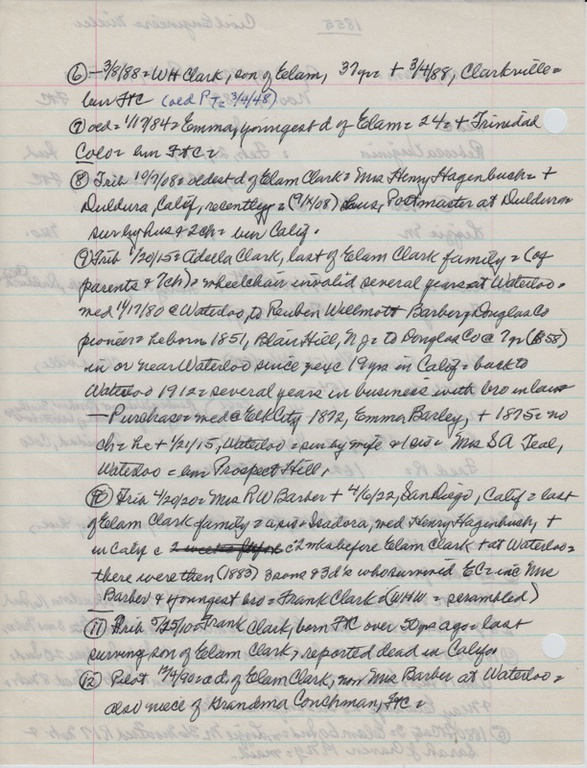 ⑥ – 3/8/88 = WH Clark, son of Elam, 37 yrs + 3/4/88, Clarkville =
bur FtC (oed PT = 3/4/48)
⑦ oed = 1/17/84 = Emma, youngest d of Elam = 24 = + Trinidad
Colo = bur FtC =
⑧ Trib 10/7/08 = oldest d of Elam Clark = Mrs Henry Hagenbuch = +
Duldura, Calif, recently = (9/ /08) hus, Postmaster at Duldura =
sur by hus & 2 ch = bur Calif.
⑨ Trib 1/20/15 = Adella Clark, last of Elam Clark family = (of
parents & 7 ch) = wheelchair invalid several years at Waterloo =
med 1/17/80 @ Waterloo, to Reuben Wellmott Barber, Douglas Co
pioneer = he born 1851, Blair Hill, NJ = to Douglas Co @ 7 yr (1858)
in or near Waterloo since exc 19 yrs in Calif = back to
Waterloo 1912 = several years in business with bro in law
– Purchase = med @ Elk City, 1872, Emma Barley, + 1875 = no
ch = he + 1/21/15, Waterloo = sur by wife & 1 sis = Mrs SA Teal,
Waterloo = bur Prospect Hill.
⑩ Trib 4/20/20 = Mrs RW Barber + 4/6/22, San Diego, Calif = last
of Elam Clark family = a sis = Isadora, med Henry Hagenbuch, +
in Calif c 2 weeks before c 2 wks before Elam Clark + at Waterloo =
there were then (1883) 3 sons & 3 d's who survived EC = inc Mrs
Barber & youngest bro = Frank Clark = (WHW = scrambled)
⑪ Trib 5/25/10 = Frank Clark, born FtC over 50 yrs ago = last
surving son of Elam Clark, reported dead in Calif.
⑫ Pilot 12/4/90 = a d. of Elam Clark, now Mrs Barber at Waterloo =
also niece of Grandma Conchman, FtC =